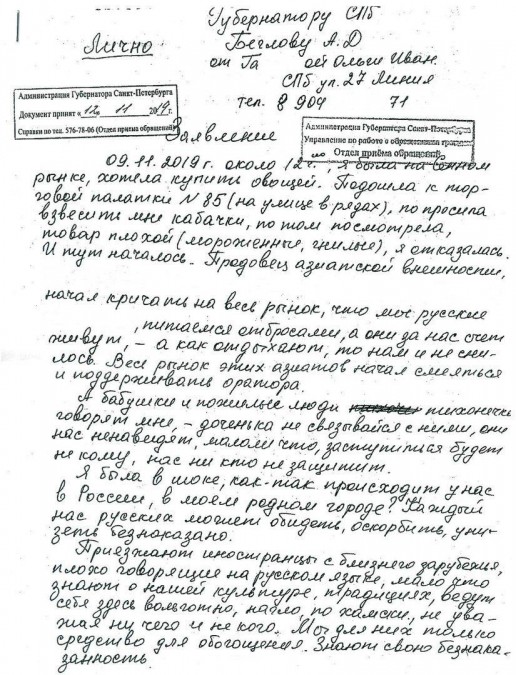 Губернатору СПб
Лично
Беглову А.Д
от Га ой Ольги Иван.
СПб ул. 27 Линия
тел. 8 904 71
Администрация Губернатора Санкт-Петербурга
Документ принят «12» 11 2019 г.
Справки по тел. 576-78-06 (Отдел приёма обращений)
Администрация Губернатора Санкт-Петербурга
Управление по работе с обращениями граждан
Отдел приёма обращений
Заявление
09.11.2019г. около 12 , я была на Сенном
рынке, хотела купить овощей. Подошла к тор-
говой палатки N 85 (на улице в рядах), попросила
взвесить мне кабачки, потом посмотрела,
товар плохой (мороженные, гнилые), я отказалась.
И тут началось. Продовец азиатской внешностии,
начал кричать на весь рынок, что мы русские
, питаемся отбросами, а они за нас счет
живут, – а как отдыхают, то нам и не сни-
лось. Весь рынок этих азиатов начал смеяться
и поддерживать оратора.
А бабушки и пожилые люди тихонечко
говорят мне, – доченька не связывайся с ними, они
нас ненаведят, мало ли что, заступиться будет
не кому, нас ни кто не защитит.
Я была в шоке, как-так происходит у нас
в России, в моём родном городе? Каждый
нас русских может обидеть, оскорбить, уни-
зеть безнаказано.
Приезжают иностранцы с близнего зарубежия,
плохо говорящие на русском языке, мало что
знают о нашей культуре, традициях, ведут
себя здесь вольготно, нагло, по хамски, не ува-
жая ни чего и не кого. Мы для них только
средство для обогощения. Знают свою безнака-
занность.